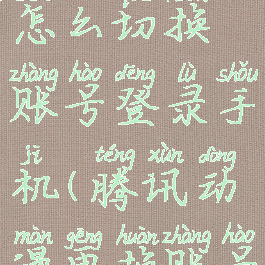 怎么切换
zhàng hào dēng lù shǒu
账号登录手
jī téng xùn dòng
机(腾讯动
màn gēng huàn zhàng hào
漫更换账号